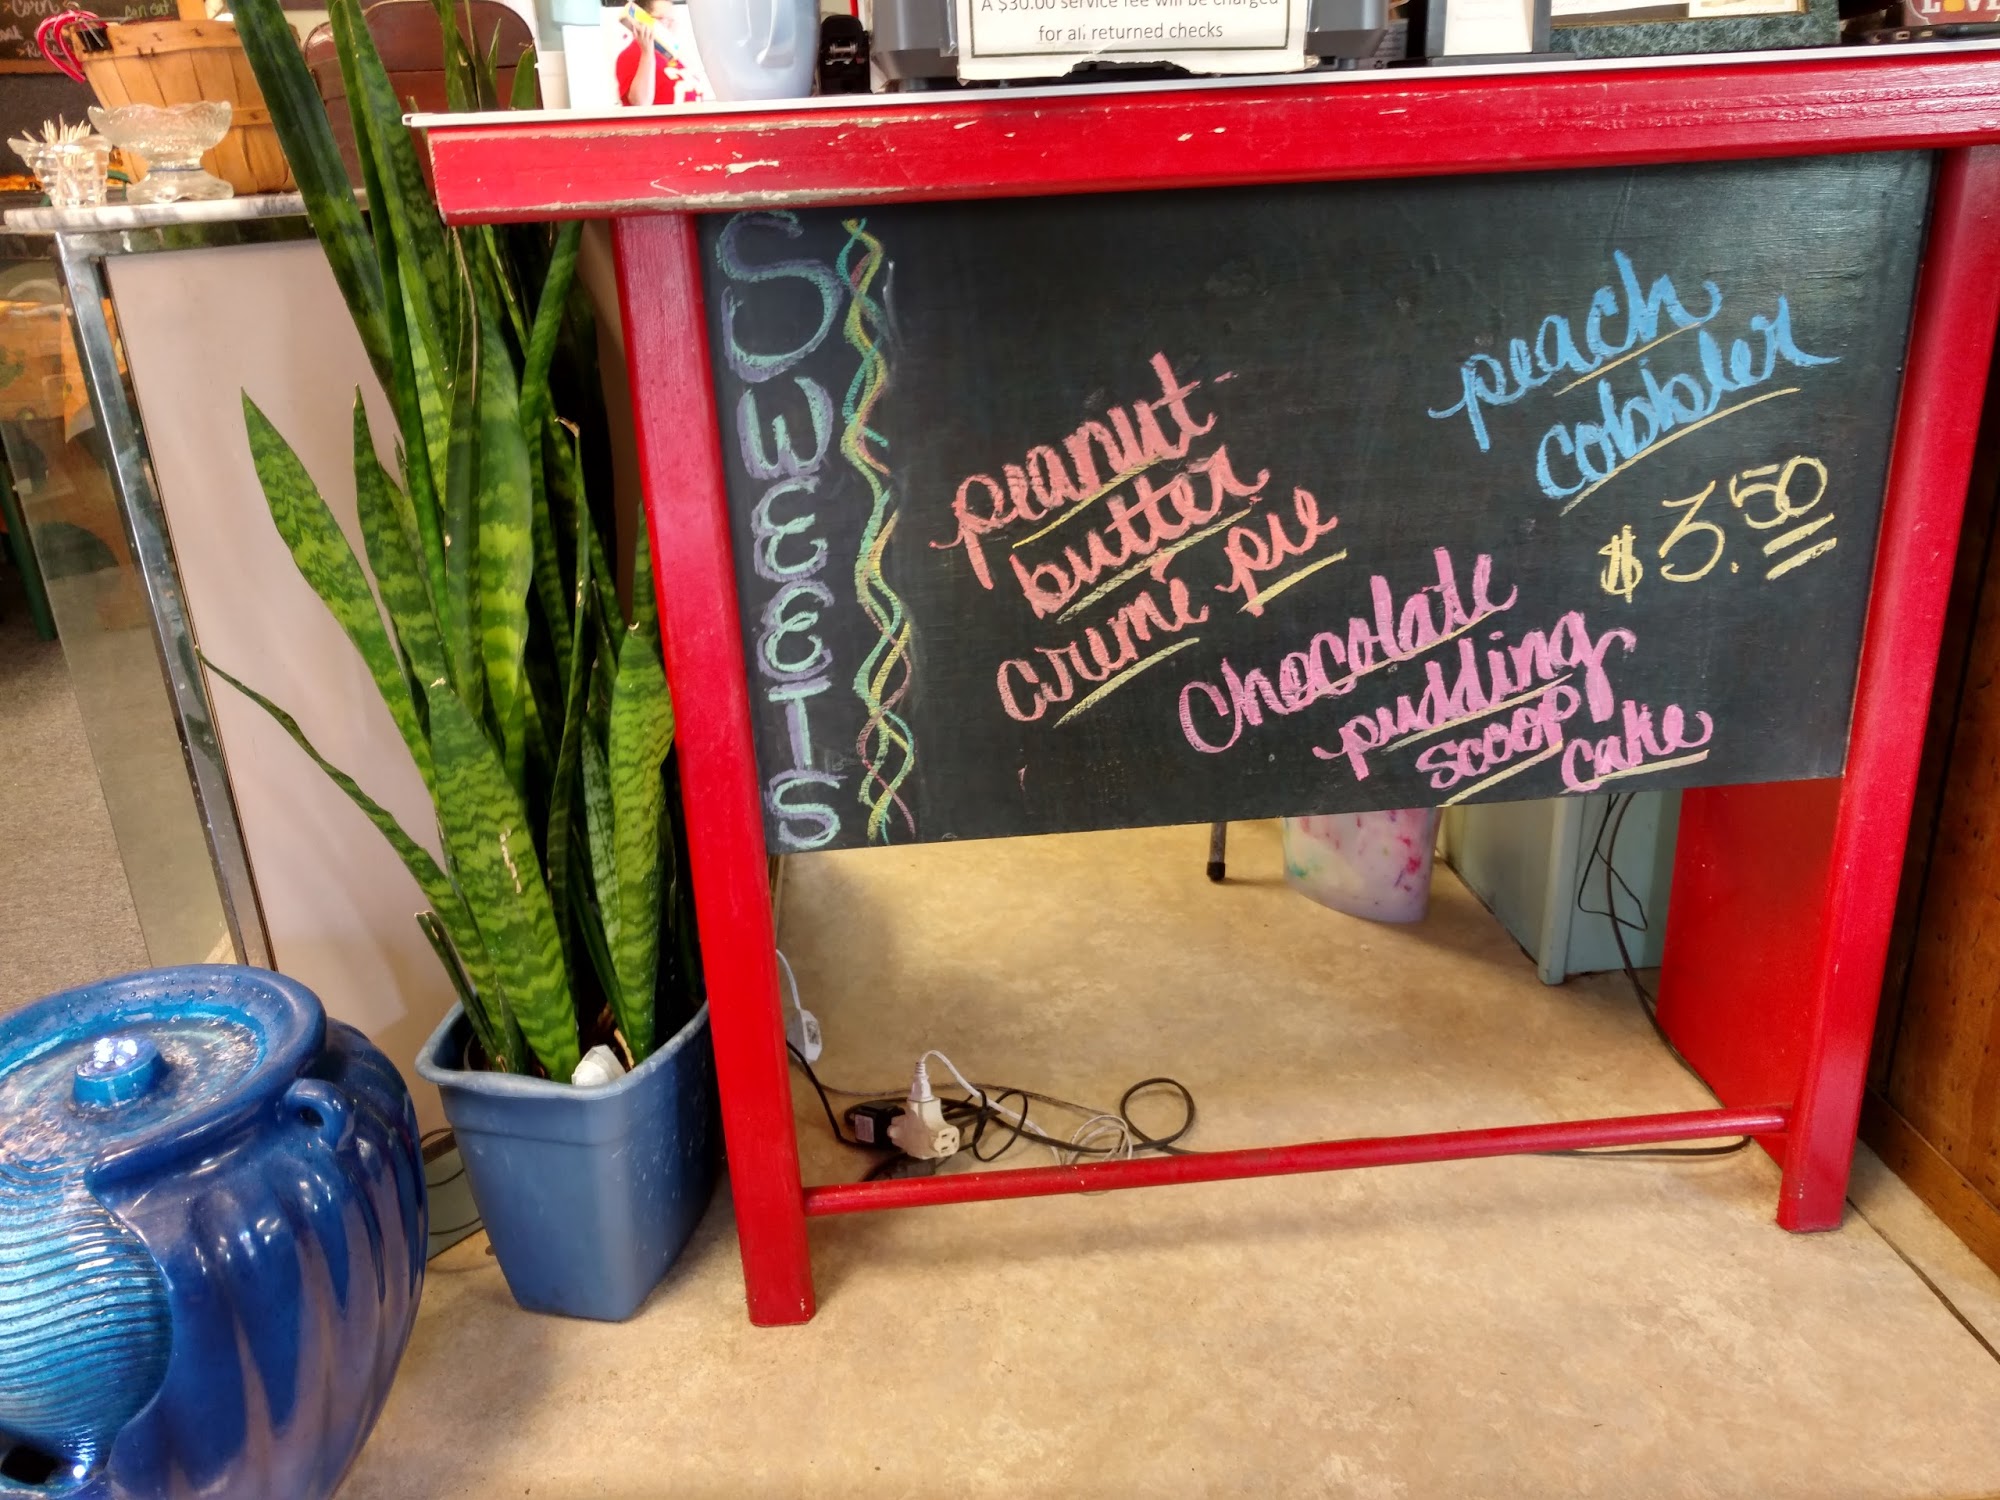 A $30.00 service fee will be charged
for all returned checks
SWEETS
peanut
butter
creme pie
peach
cobbler
$3.50
Chocolate
pudding
scoop
cake